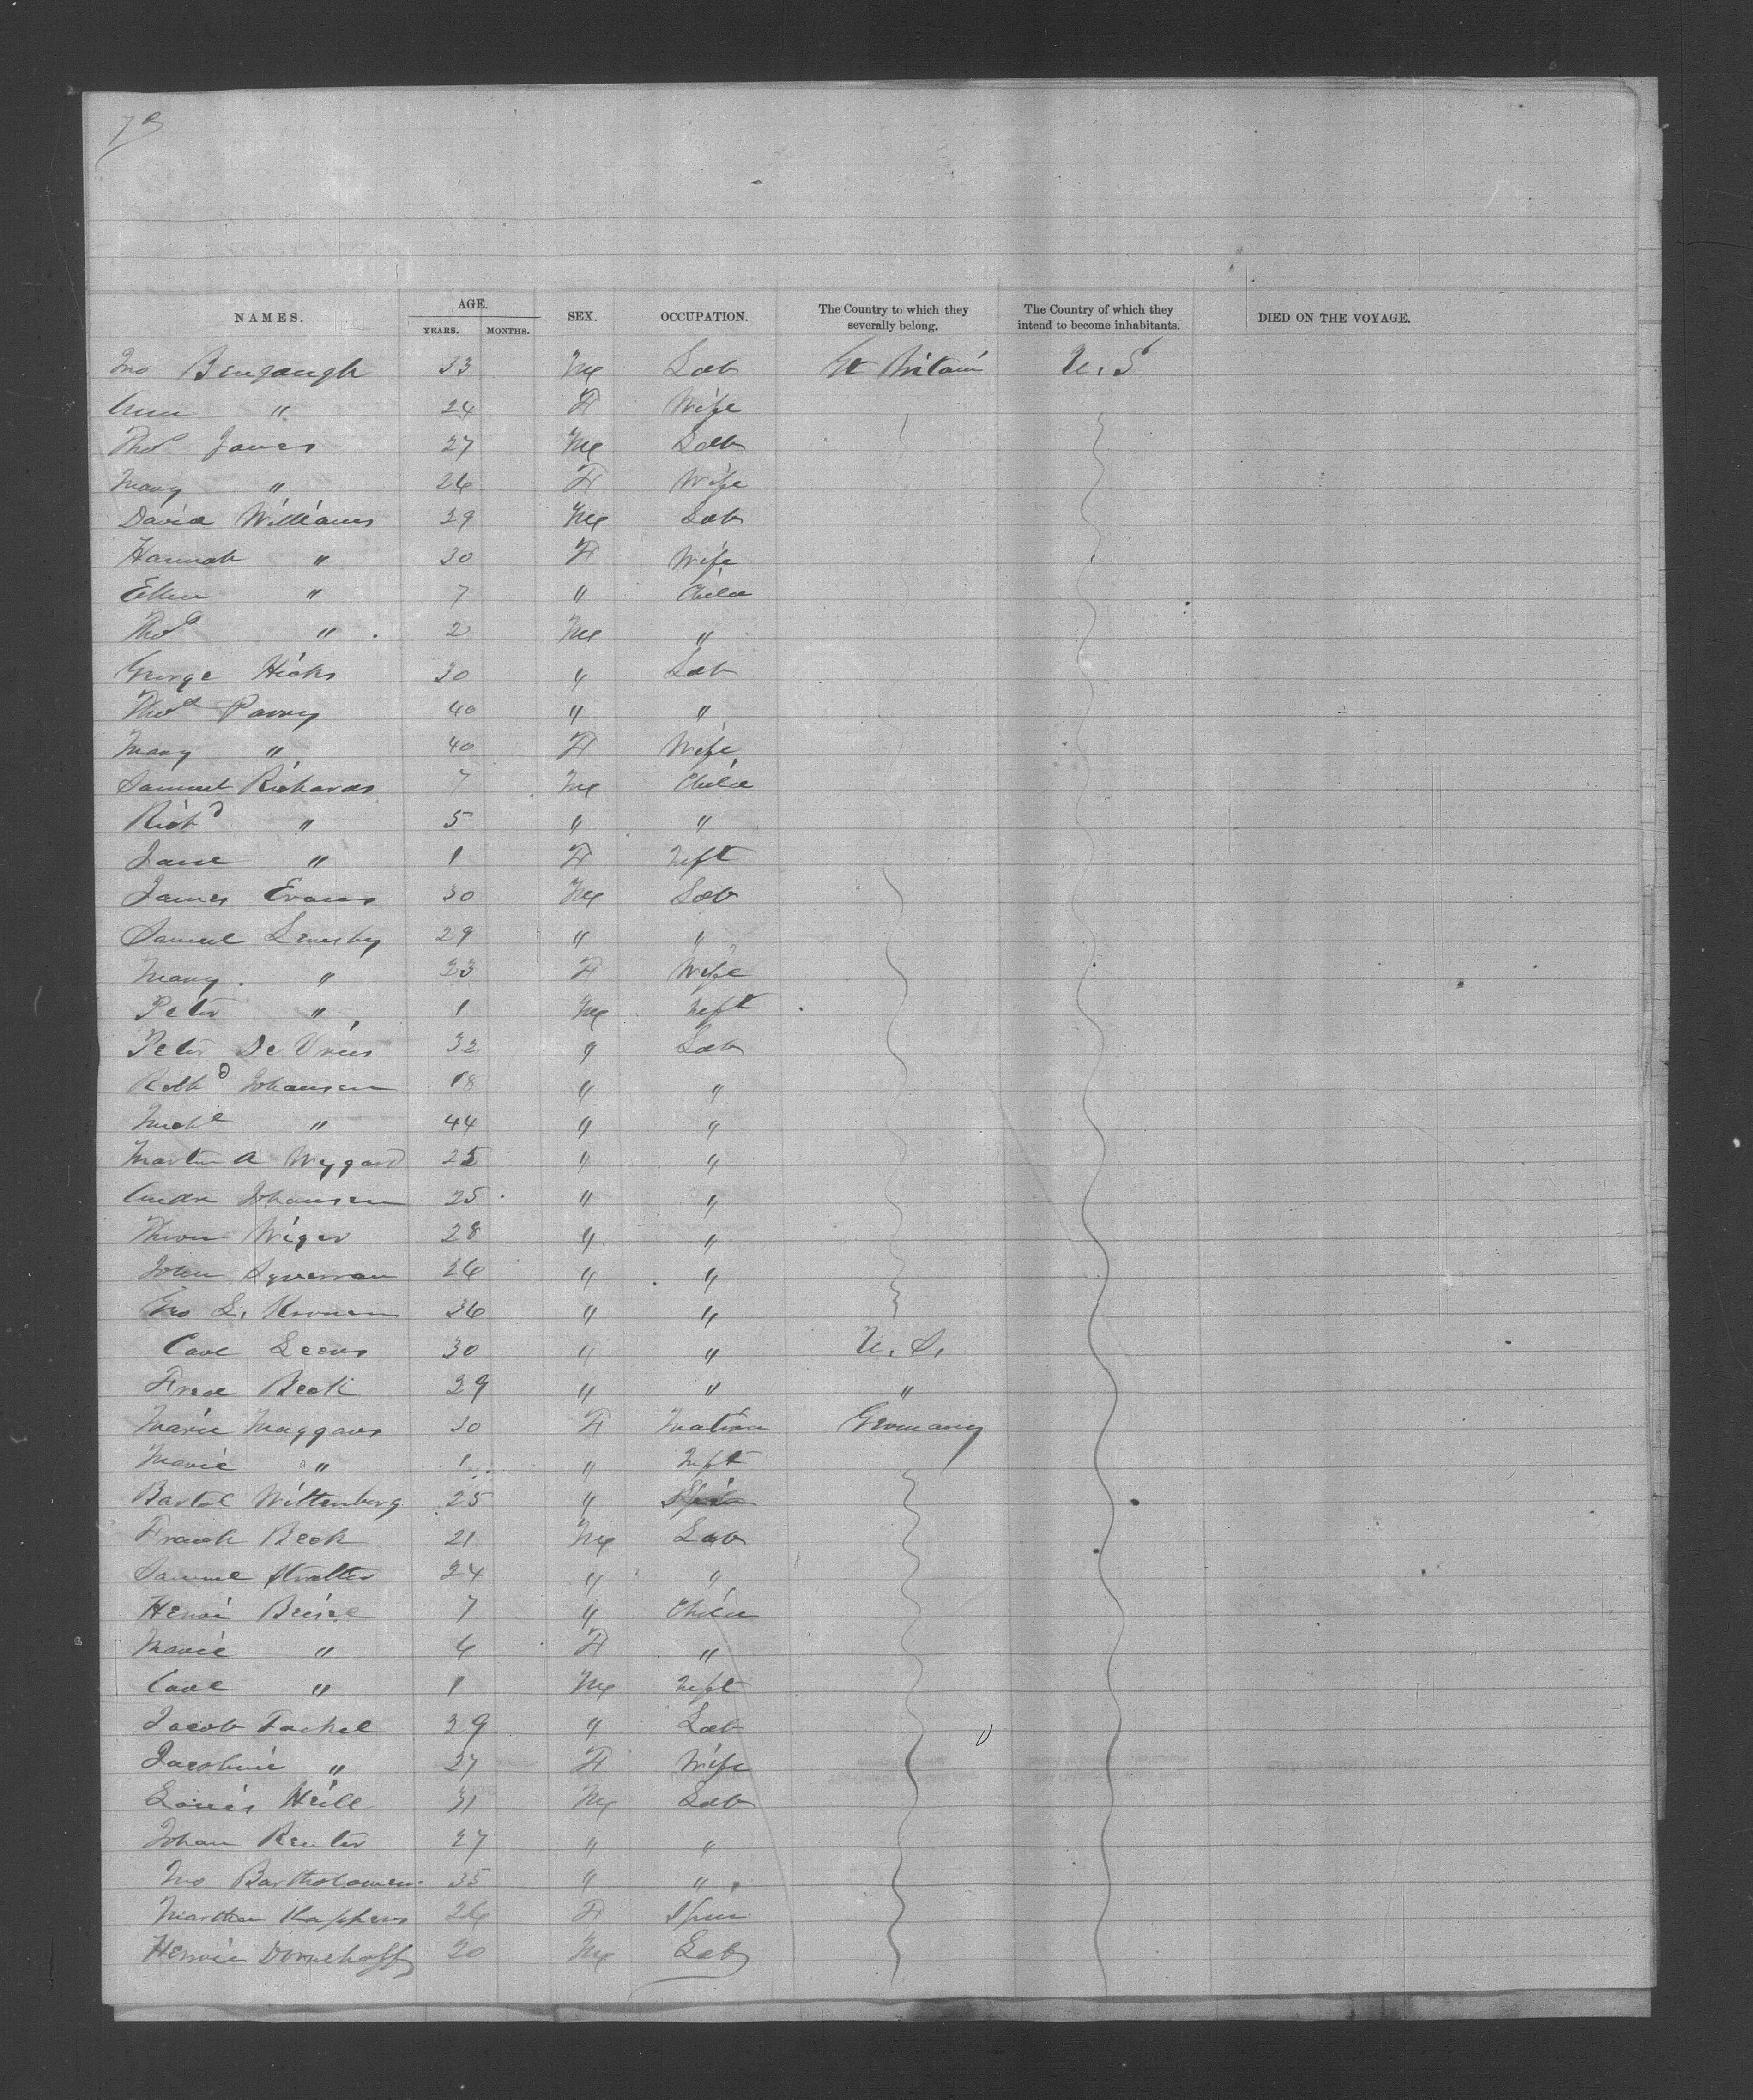 NAMES. AGE. SEX. OCCUPATION. The Country to which they severally belong. The Country of which they intend to become inhabitants. DIED ON THE VOYAGE.
YEARS. MONTHS.
Jno Bengough 33 M Lab Gt Britain U.S
Ann " 24 F Wife
Thos Jones 27 M Lab
Mary " 26 F Wife
David Williams 29 M Lab
Hannah " 30 F Wife
Ellen " 7 " Child
Thos " 2 M "
George Hicks 30 " Lab
Thos Parry 40 " "
Mary " 40 F Wife
Samuel Richards 7 M Child
Richd " 5 " "
Jane " 1 F Inft
James Evans 30 M Lab
Samuel 29 " "
Mary " 23 F Wife
Peter " 1 M Inft
Peter De Vries 32 " Lab
Johansen 18 " "
Michl " 44 " "
Martin A Wygard 25 " "
Andr Johansen 25 " "
28 " "
John 26 " "
Jno L. 36 " "
Carl 30 " " U.S.
Fred Beck 29 " " "
Marie 30 F Matron Germany
Marie " 1 " Inft
Bartol Wittenberg 25 "
Frank Beck 21 M Lab
24 " "
Henri 7 " Child
Marie " 6 F "
Carl " 1 M Inft
Jacob Fackel 29 " Lab
Jacobine " 27 F Wife
Louis Heill 31 M Lab
Johan Reuter 27 " "
Jno Bartholomew 35 " "
Martha 26 F Spin
20 M Lab